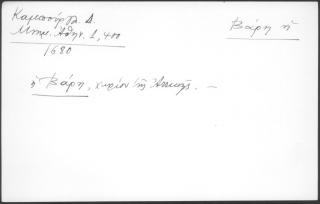 Καμπούρογλ. Δ.
Μνημ. Ἀθην. 1, 400
1680
Βάρη ἡ
ἡ Βάρη, χωρίον τῆς Ἀττικῆς. —